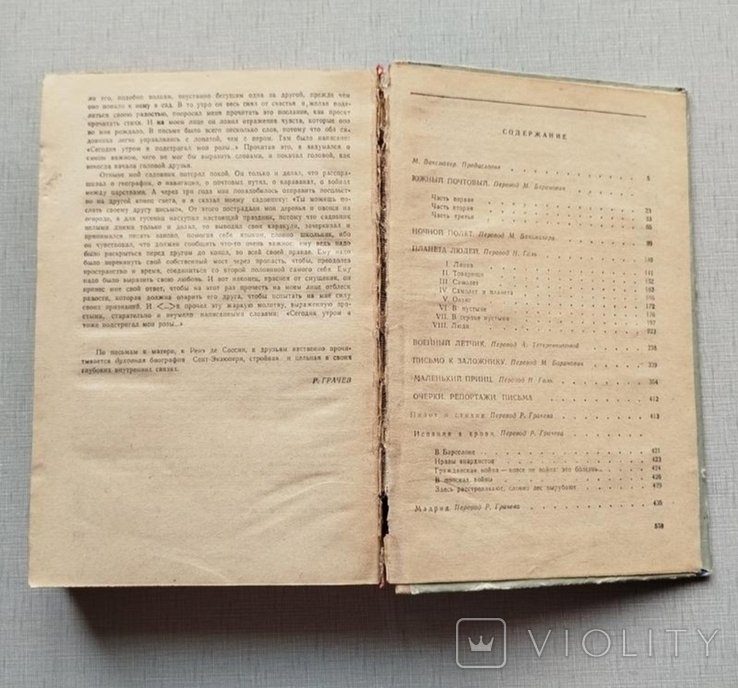 ли его, подобно волнам, неустанно бегущим одна за другой, прежде чем
оно попало к нему в сад. В то утро он весь сиял от счастья и, желая поде-
литься своею радостью, попросил меня прочитать это послание, как просят
прочитать стихи. И на моем лице он ловил отражения чувств, которые оно
во мне рождало. В письме было всего несколько слов, потому что оба са-
довника легче управлялись с лопатой, чем с пером. Там было написано:
«Сегодня утром я подстригал мои розы...» Прочитав это, я задумался о
самом важном, чего не мог бы выразить словами, и покачал головой, как
некогда качали головой друзья.
Отныне мой садовник потерял покой. Он только и делал, что расспра-
шивал о географии, о навигации, о почтовых путях, о караванах, о войнах
между царствами. А через три года мне понадобилось отправить посольст-
во на другой конец света, и я сказал моему садовнику: «Ты можешь по-
слать своему другу письмо». От этого пострадали мои деревья и овощи на
огороде, а для гусениц наступил настоящий праздник, потому что садовник
целыми днями только и делал, то выводил свои каракули, зачеркивал и
принимался писать заново, помогая себе языком, словно школьник, ибо
он чувствовал, что должен сообщить что-то очень важное, ему ведь надо
было раскрыться перед другом до конца, во всей своей правде. Ему надо
было перекинуть свой собственный мост через пропасть, чтобы, преодолев
пространство и время, соединиться со второй половиной самого себя. Ему
надо было выразить свою любовь. И вот наконец, краснея от смущения, он
принес мне свой ответ, чтобы на этот раз прочесть на моем лице отблеск
радости, которая должна озарить его друга, чтобы испытать на мне силу
своих признаний. И <...> я прочел эту жаркую молитву, выраженную пра-
ктично, старательно и неумело написанными словами: «Сегодня утром я
тоже подстригал мои розы...»
По письмам к матери, к Рене де Соссин, к друзьям явственно прочи-
тывается духовная биография Сент-Экзюпери, стройная и цельная в своих
глубоких внутренних связях.
Р. ГРАЧЕВ
СОДЕРЖАНИЕ
М. Ваксмахер. Предисловие 5
ЮЖНЫЙ ПОЧТОВЫЙ. Перевод М. Баранович
Часть первая 21
Часть вторая
Часть третья
НОЧНОЙ ПОЛЕТ. Перевод М. Ваксмахера
ПЛАНЕТА ЛЮДЕЙ. Перевод Н. Галь
I. Линия
II. Товарищи 141
III. Самолет 152
IV. Самолет и планета
V. Оазис
VI. В пустыне
VII. В сердце пустыни 197
VIII. Люди
ВОЕННЫЙ ЛЕТЧИК. Перевод А. Тетеревниковой
ПИСЬМО К ЗАЛОЖНИКУ. Перевод М. Баранович 339
МАЛЕНЬКИЙ ПРИНЦ. Перевод Н. Галь
ОЧЕРКИ. РЕПОРТАЖИ. ПИСЬМА 412
Пилот и стихия. Перевод Р. Грачева 413
Испания в крови. Перевод Р. Грачева
В Барселоне 421
Нравы анархистов 423
Гражданская война — вовсе не война: это болезнь 424
В поисках войны 426
Здесь расстреливают, словно лес вырубают 429
Мадрид. Перевод Р. Грачева 435
VIOLITY